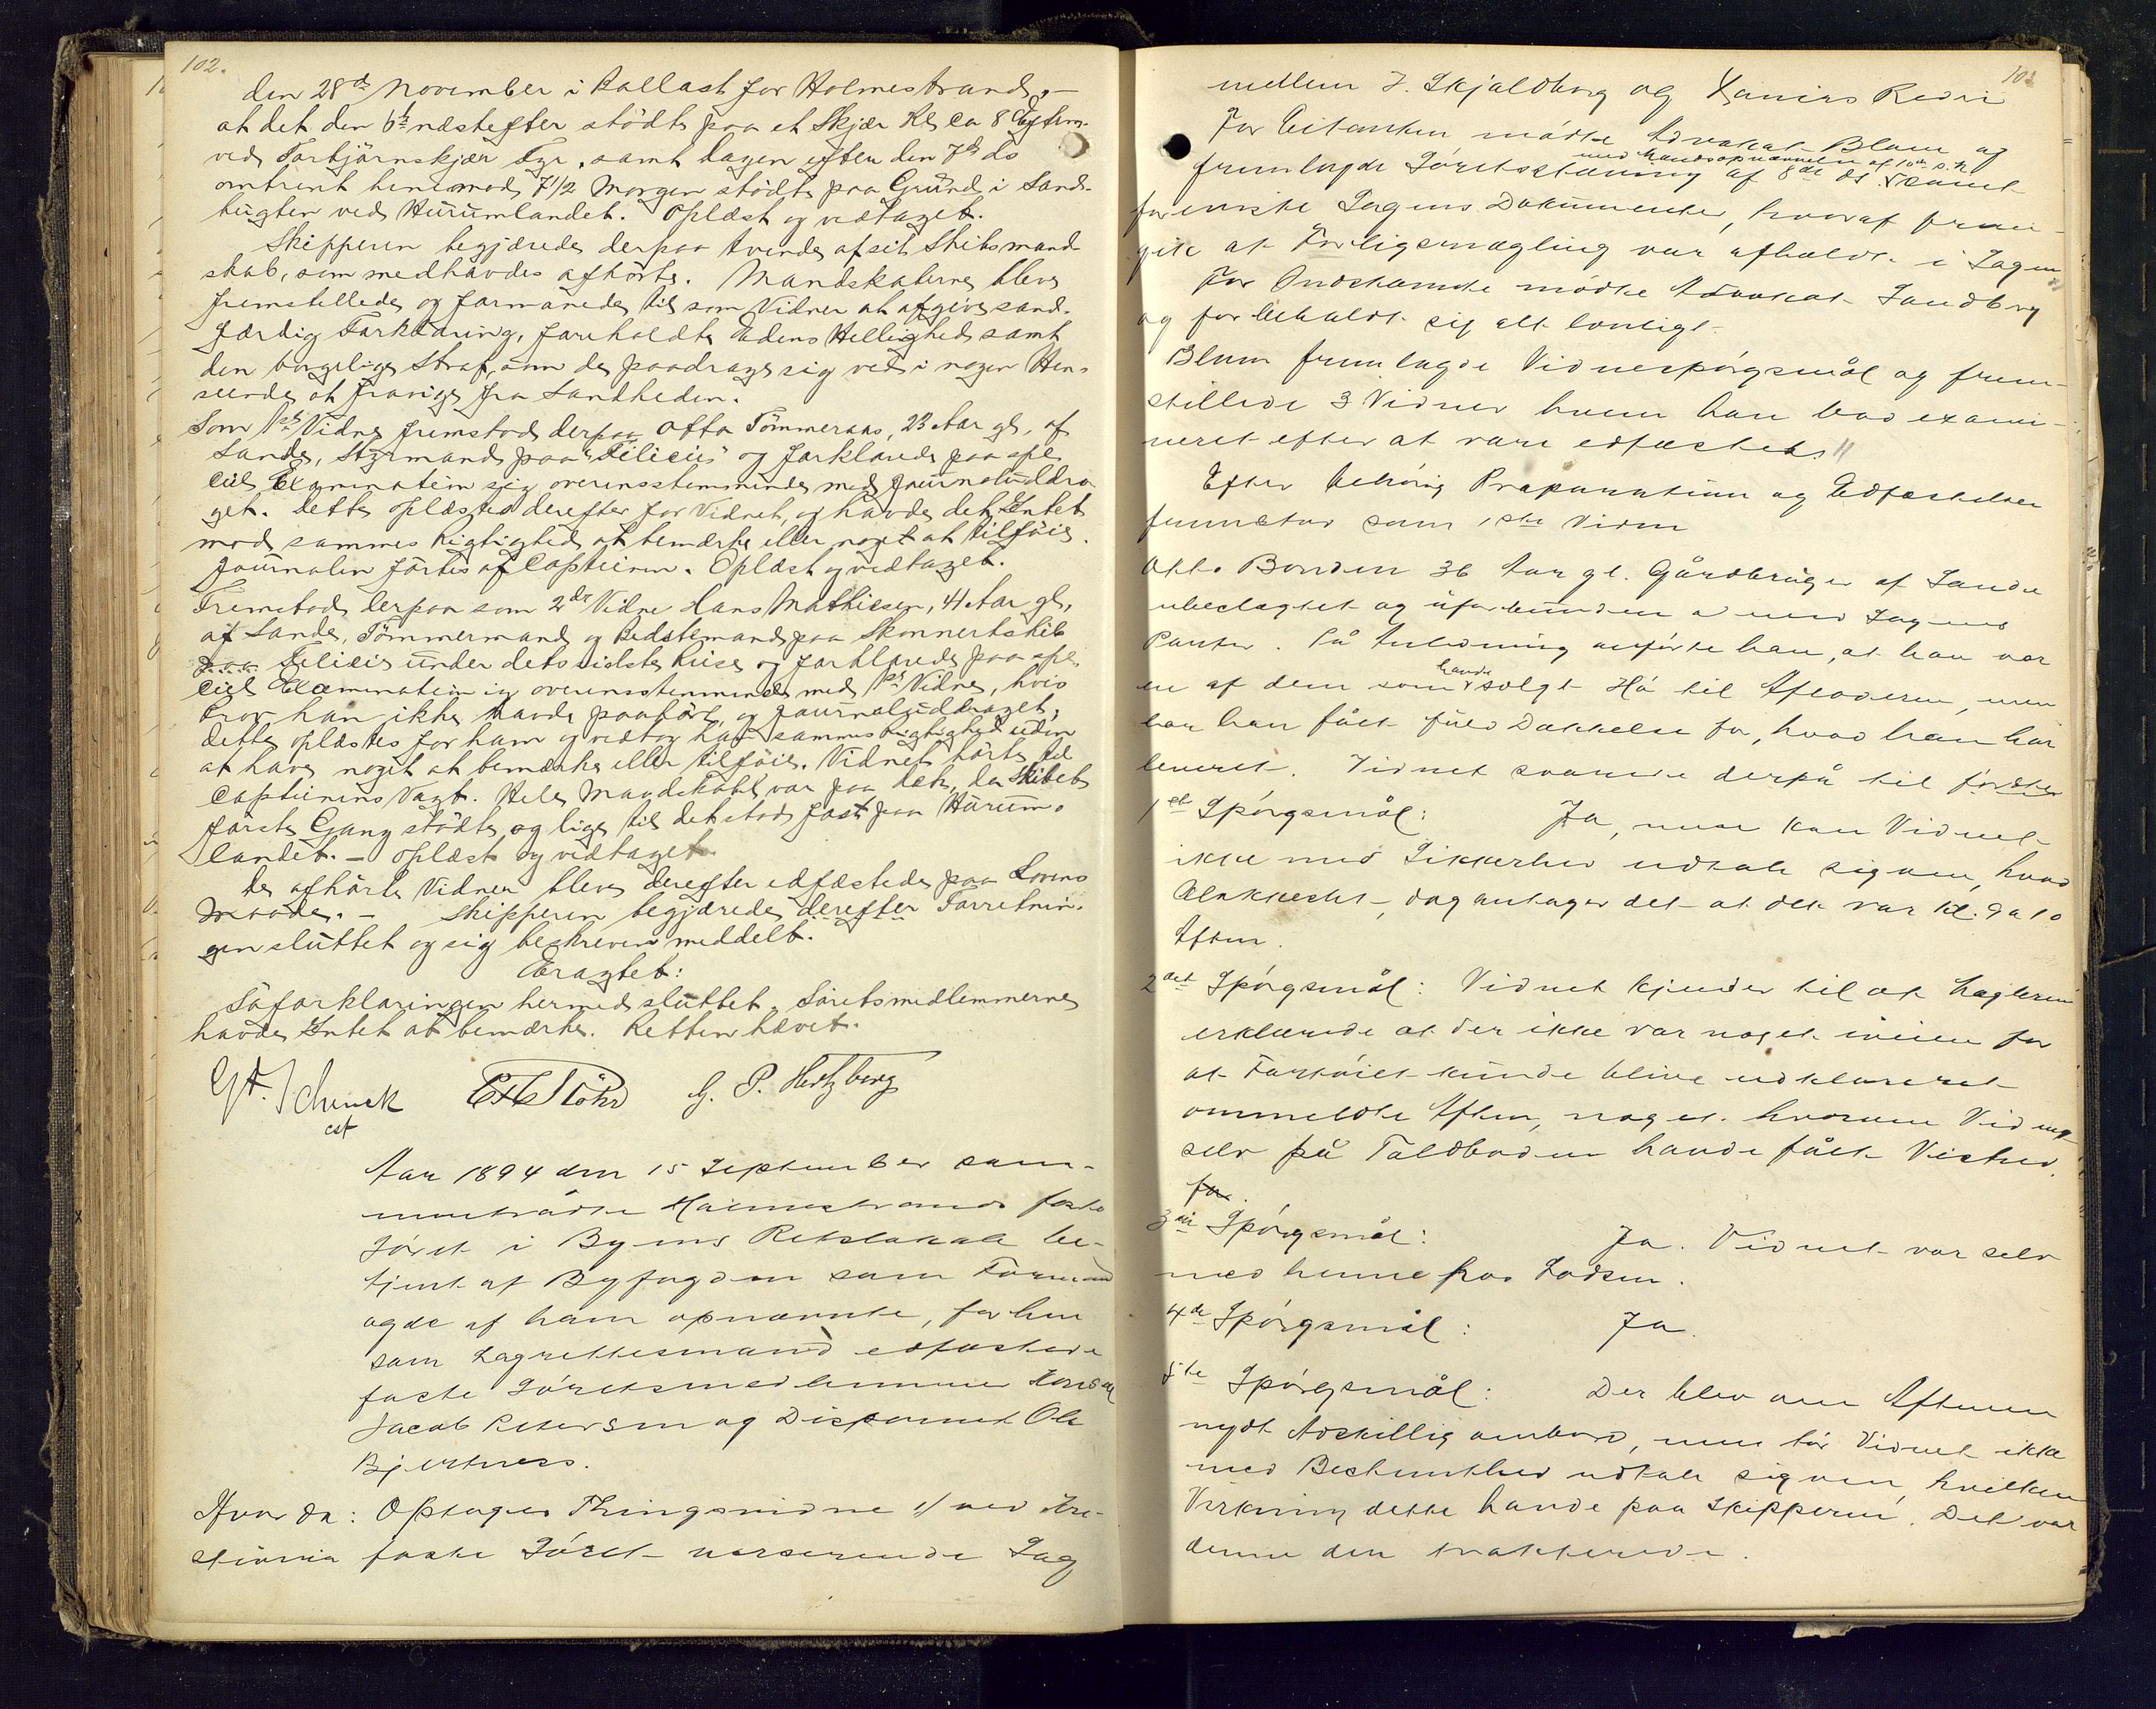 102.
den 28de November i Ballast for Holmestrand, –
at det den 6te næstefter stödte paa et Skjær Kl ca 8 Efterm.
ved Torbjörnskjær Fyr, samt Dagen efter den 7de ds
omtrent henimod 7 1/2 Morgen stödte paa Grund i Sand-
bugten ved Hurumlandet. Oplæst og vedtaget.
Skipperen begjærede derpaa tvende af sit Skibsmand-
skab, som medhavdes afhörte. Mandskaberne bleve
fremstillede og formanede til som Vidner at afgive sand-
færdig Forklaring, foreholdt Edens Hellighed samt
den borgelige Straf, som de paadrage sig ved i nogen Hen-
seende at fravige fra Sandheden.
Som 1ste Vidne fremstod derpaa Otto Tömmeraas, 23 Aar gl, af
Sande, Styrmand paa "Felicia" og forklarede paa spe-
ciel Examination sig overensstemmende med Journaluddra
get. Dette oplæstes derefter for Vidnet, og havde det Intet
mod sammes Rigtighed at bemærke eller noget at tilföie.
Journalen förtes af Capteinen. Oplæst og vedtaget.
Fremstod derpaa som 2det Vidne Hans Mathiesen, 41 Aar gl,
af Sande, Tömmermand og Bedstemand paa Skonnertskib
paa Felicia under dets sidste Reise og forklarede paa spe-
ciel Examination sig overensstemmende med 1ste Vidne, hvis
Prov han ikke havde paahört, og Journaluddraget,
dette oplæstes for ham og vedtog han sammes Rigtighed uden
at have noget at bemærke eller tilföie. Vidnet hörte til
Capteinens Vagt. Hele Mandskabet var paa Dæk, da Skibet
förste Gang stödte og lige til det stod fast paa Hurum-
landet. – Oplæst og vedtaget.
De afhörte Vidner bleve derefter edfæstede paa Lovens
Maade. – Skipperen begjærede derefter Forretnin-
gen sluttet og sig beskreven meddelt.
Eragtet:
Söforklaringen hermed sluttet. Söretsmedlemmerne
havde Intet at bemærke. Retten hævet.
Schenck G. P. Hertzberg
cst
Aar 1894 den 15 September sam-
mentrådte Holmestrands faste
Söret i Byens Retslokale be-
tjent af Byfogden som Formand
og de af ham opnævnte, forhen
som Lagrettesmænd edfæstede
faste Söretsmedlemmer
Jacob Petersen og Disponent Ole
Bjertnæs.
Hvor da: Optoges Thingsvidne i en ved Kri-
stiania faste Söret verserende Sag
103
mellem J. Skjaldborg og Xaniers Rederi
For Citanten mödte Advokat Blom og
med Mandsopnævnelse af 10de s. M
fremlagde Söretsstævning af 8de ds samt
foreviste Sagens Dokumenter, hvoraf frem-
gik at Forligsmægling var afholdt i Sagen
For Indstævnte mödte Advokat Sandberg
og forbeholdt sig alt lovligt.
Blom fremlagde Vidnespörgsmål og frem-
stillede 3 Vidner hvem han bad exami-
neret efter at være edfæstede. //
Efter behörig Præparation og Edfæstelse
fremstod som 1ste Vidne
Otto Bonden 36 Aar gl. Gårdbruger af Sande
ubeslægtet og uforbunden med Sagens
Parter. På Anledning anförte han, at han var
havde
en af dem som solgt Hö til Afladeren, men
har han fået fuld Dækkelse for, hvad han har
leveret. Vidnet svarede derpå til förste
1ste Spörgsmål: Ja, men kan Vidnet
ikke med Sikkerhed udtale sig om, hvad
Klokkeslet, dog antager det at det var kl. 9 a 10
Aften.
2det Spörgsmål: Vidnet kjender til at Mægleren
erklærede at der ikke var noget iveien for
at Fartöiet kunde blive udklareret
ommeldte Aften, noget hvorom Vidnet
selv på Toldboden havde fået Vished.
for.
3die Spörgsmål: Ja. Vidnet var selv
med henne hos Lodsen.
4de Spörgsmål: Ja.
5te Spörgsmål: Der blev om Aftenen
nydt Adskillig ombord, men tör Vidnet ikke
med Bestemthed udtale sig om, hvilken
Virkning dette havde paa Skipperen. Det var
denne der trakterede.